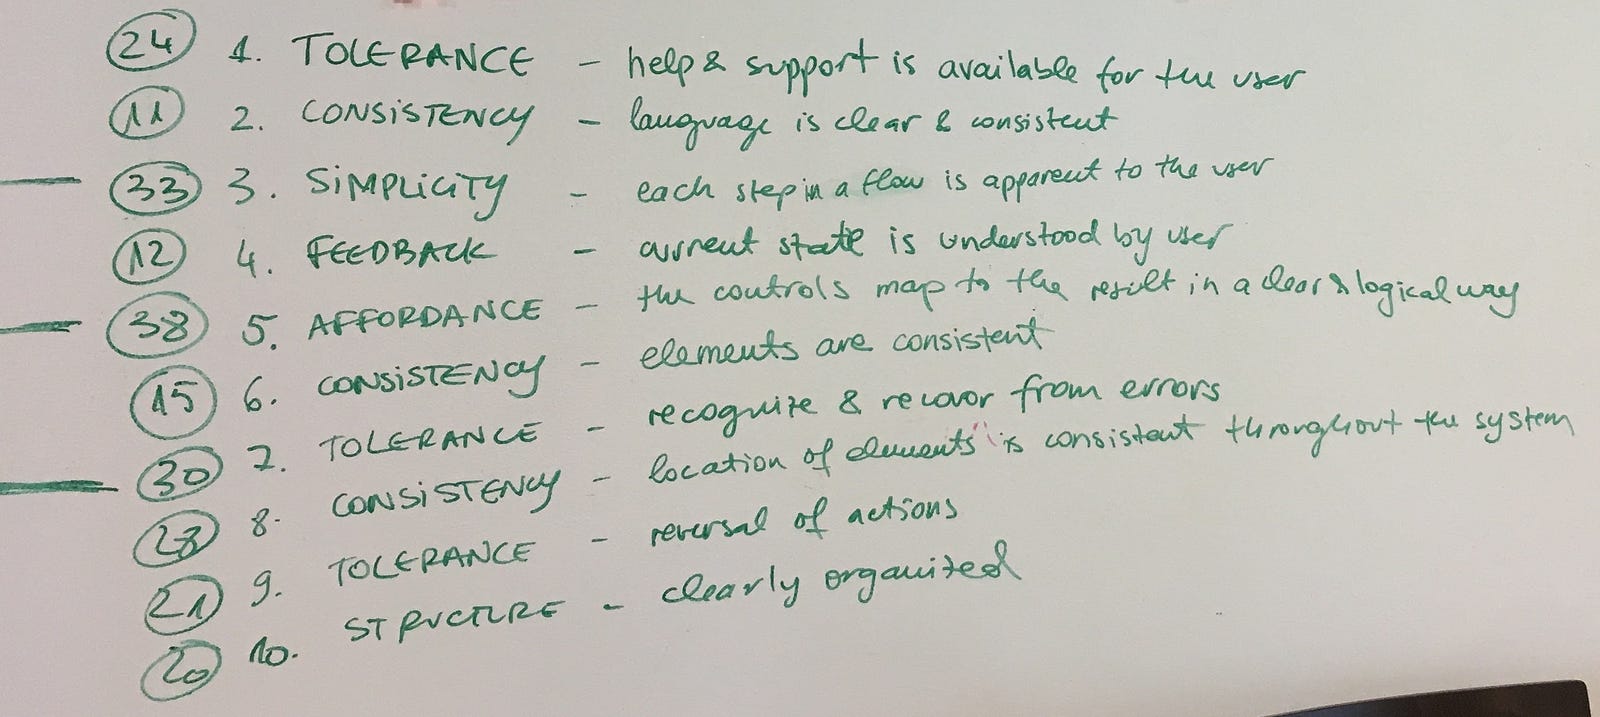 24 1. TOLERANCE - help & support is available for the user
11 2. CONSISTENCY - language is clear & consistent
33 3. SIMPLICITY - each step in a flow is apparent to the user
12 4. FEEDBACK - current state is understood by user
38 5. AFFORDANCE - the controls map to the result in a clear & logical way
15 6. CONSISTENCY - elements are consistent
30 7. TOLERANCE - recognize & recover from errors
8. CONSISTENCY - location of elements is consistent throughout the system
21 9. TOLERANCE - reversal of actions
20 10. STRUCTURE - clearly organized